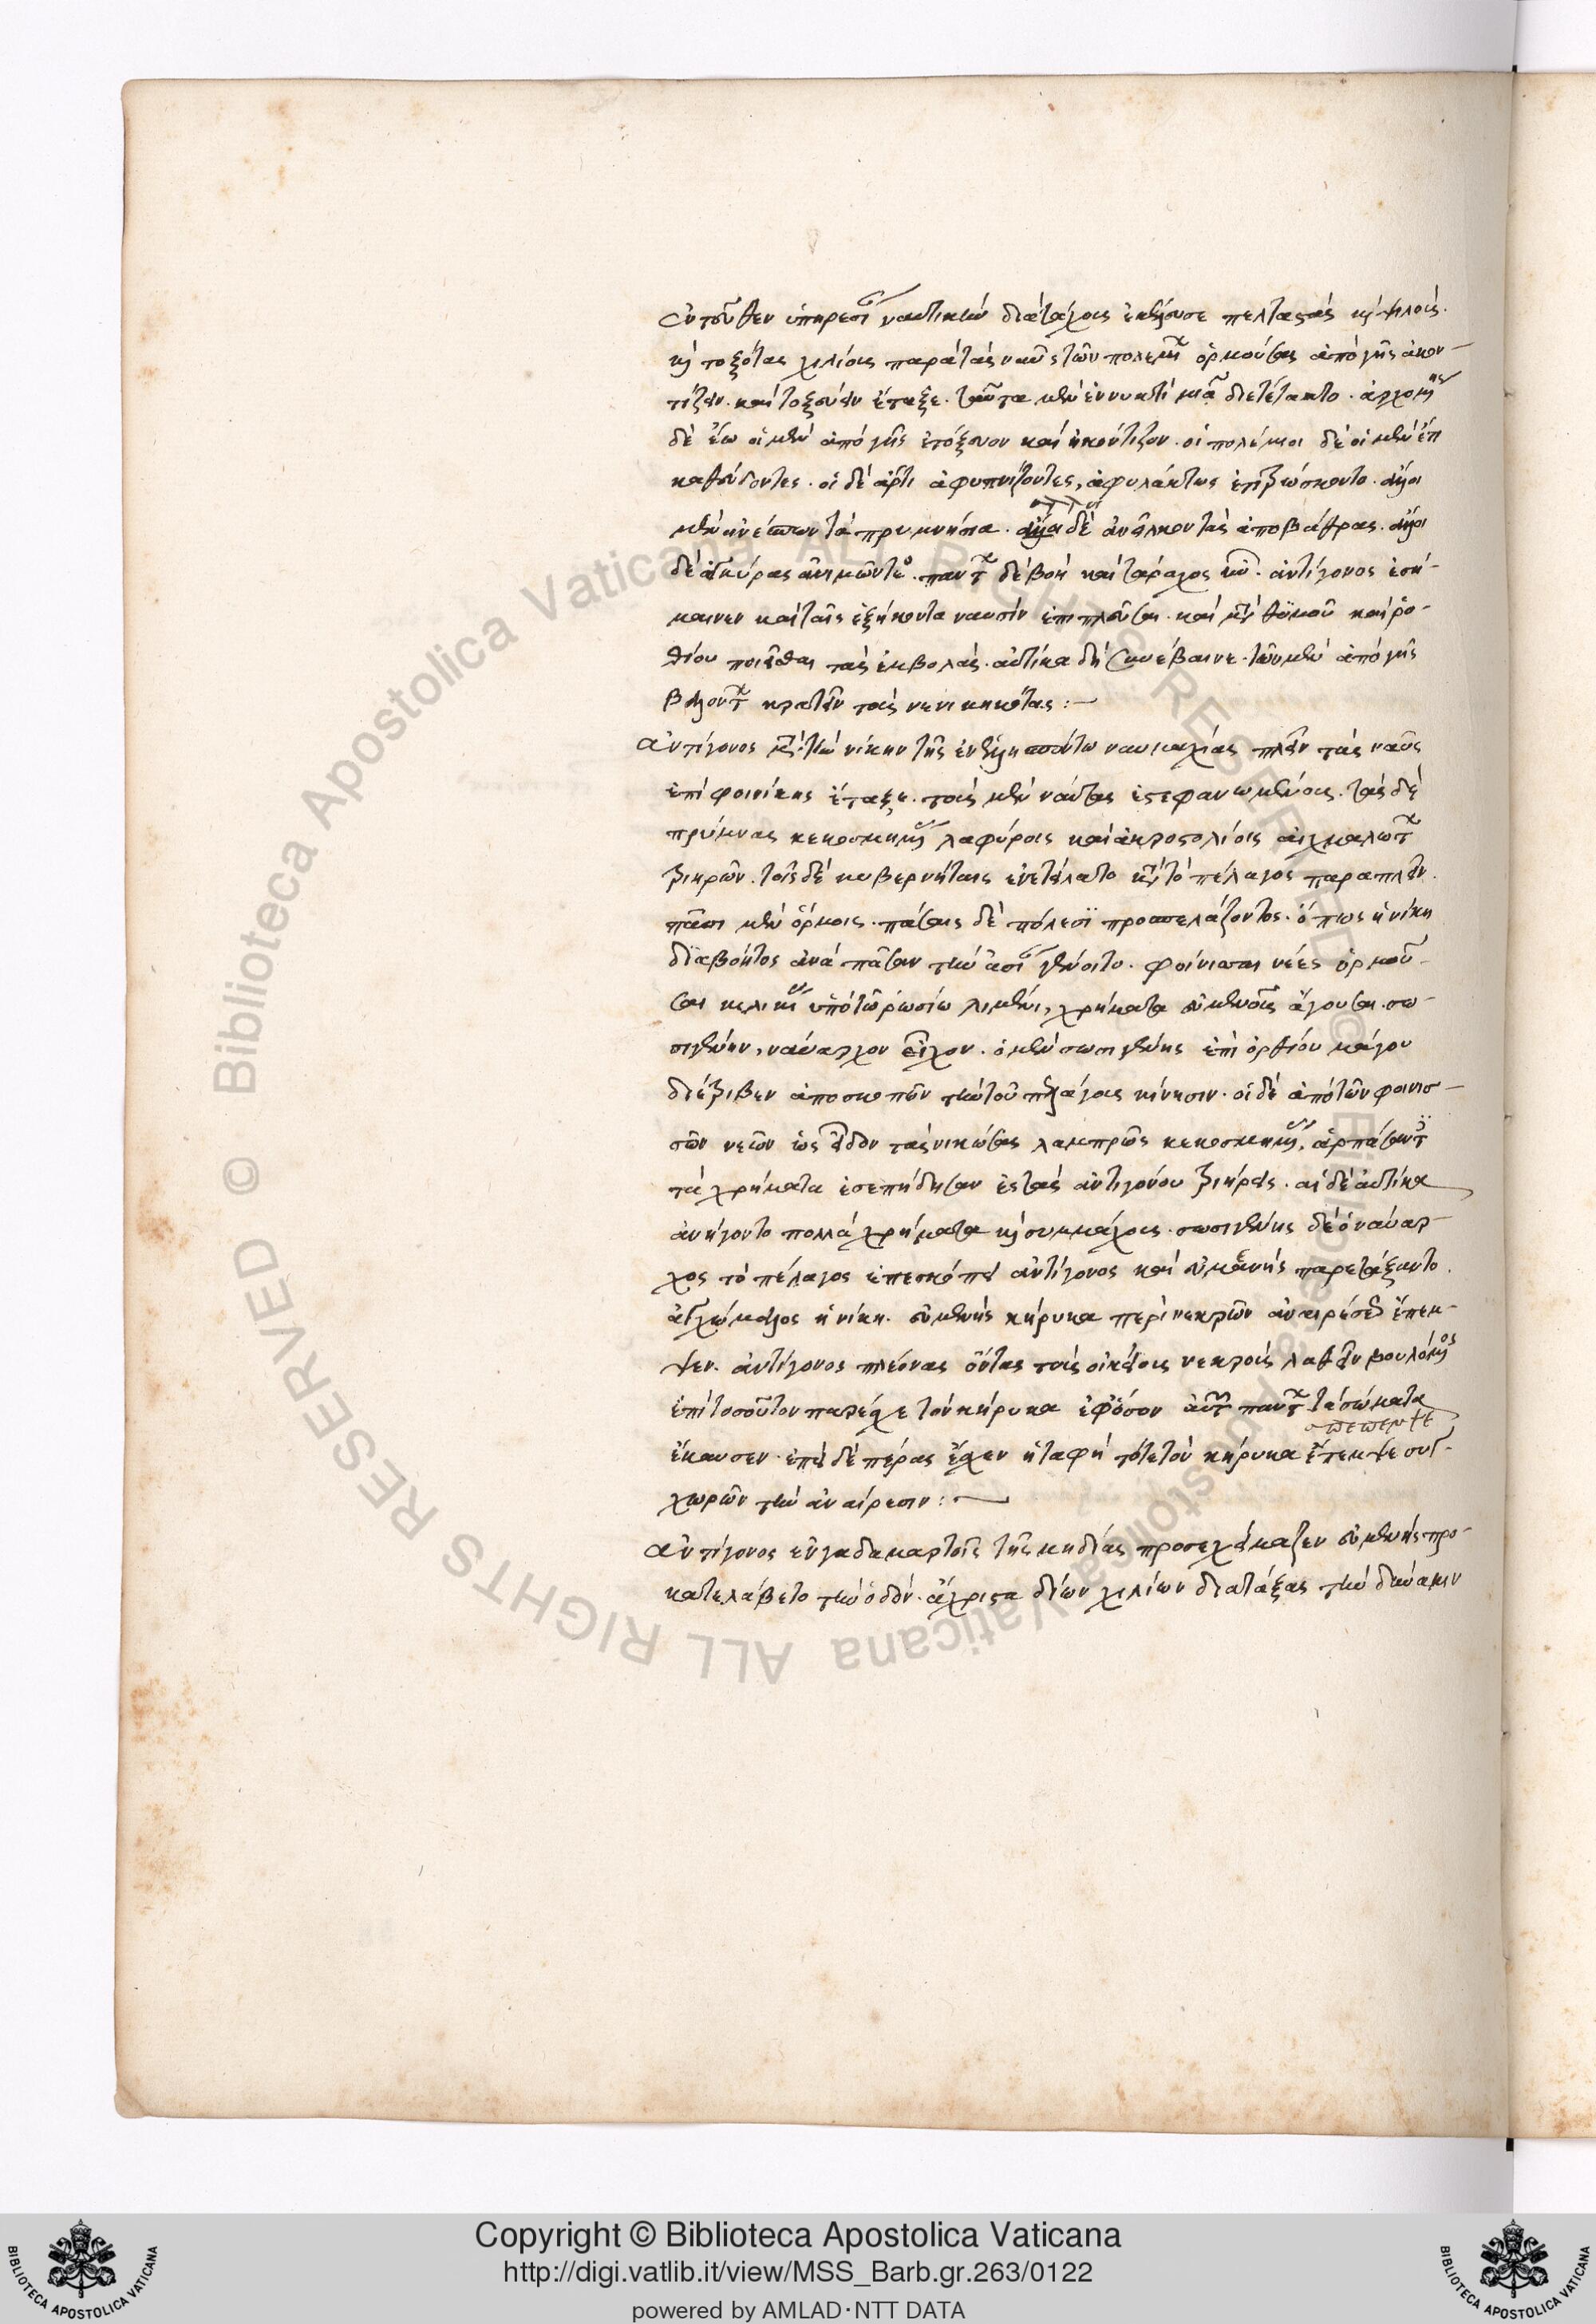 ἐντεῦθεν ὑπηρεσίαις ναυτικῶν διὰ τάχους ἐκέλευσε πελταστὰς καὶ ψιλοὺς.
καὶ τοξότας χιλίους παρὰ τὰς ναῦς τῶν πολεμίων ὁρμούσας ἀπὸ γῆς ἀκον-
τίζειν. καὶ τοξεύειν ἔταξε. ταῦτα μὲν ἐν νυκτὶ μιᾷ διετέτακτο. ἀρχομένης
δὲ ἕω οἱ μὲν ἀπὸ γῆς ἐτόξευον καὶ ἠκόντιζον. οἱ πολέμιοι δὲ οἱ μὲν ἔτι
καθεύδοντες. οἱ δὲ ἄρτι ἀφυπνίζοντες, ἀφυλάκτως ἐτιτρώσκοντο. ἄλλοι
μὲν ἀνέσπων τὰ πρυμνήσια. ἄλλοι δὲ ἀνεῖλκον τὰς ἀποβάθρας. ἄλλοι
δὲ ἀγκύρας ἀνιμῶντο. πάντων δὲ βοὴ καὶ τάραχος ἦν. ἀντίγονος ἐσή-
μαινεν καὶ ταῖς ἑξήκοντα ναυσὶν ἐπιπλεῦσαι. καὶ μετὰ θυμοῦ καὶ ῥο-
θίου ποιεῖσθαι τὰς ἐμβολάς. αὐτίκα δὴ συνέβαινε τῶν μὲν ἀπὸ γῆς
βαλλόντων κρατεῖν τοὺς νενικηκότας :—
Ἀντίγονος μετὰ τὴν νίκην τῆς ἐν ἑλλησπόντω ναυμαχίας πλεῖν τὰς ναῦς
ἐπὶ φοινίκης ἔταξε. τοὺς μὲν ναύτας ἐστεφανωμένους. τὰς δὲ
πρύμνας κεκοσμημένας λαφύροις καὶ ἀκροστολίοις αἰχμαλώτων
τριηρῶν. τοῖς δὲ κυβερνήταις ἐνετείλατο κατὰ τὸ πέλαγος παραπλεῖν.
πᾶσι μὲν ὅρμοις. πάσαις δὲ πόλεσι προσπελάζοντας. ὅπως ἡ νίκη
διαβόητος ἀνὰ πᾶσαν τὴν ἀσίαν γένοιτο. φοίνισσαι νέες ὁρμοῦ-
σαι κιλικίας ὑπὸ τῶ ῥωσίω λιμένι, χρήματα εὐμενοῦς ἄγουσαι. σω-
σιγένην, ναύαρχον εἶχον. ὁ μὲν σωσιγένης ἐπὶ ὀρθίου πάγου
διέτριβεν ἀποσκοπῶν τὴν τοῦ πελάγους κίνησιν. οἱ δὲ ἀπὸ τῶν φοινισ-
σῶν νεῶν ὡς εἶδον τὰς νικώσας λαμπρῶς κεκοσμημένας, ἁρπάσαντες
τὰ χρήματα ἐσεπήδησαν ἐς τὰς ἀντιγόνου τριήρεις. αἱ δὲ αὐτίκα
ἀνήγοντο πολλὰ χρήματα καὶ συμμάχους. σωσιγένης δὲ ὁ ναύαρ-
χος τὸ πέλαγος ἐπεσκόπει ἀντίγονος καὶ εὐμενὴς παρετάξαντο.
ἀγχώμαλος ἡ νίκη. εὐμενὴς κήρυκα περὶ νεκρῶν ἀναιρέσεως ἔπεμ-
ψεν. ἀντίγονος πλέονας ὄντας τοὺς οἰκείους νεκροὺς λαθεῖν βουλόμενος
ἐπὶ τοσοῦτον παρεῖχε τὸν κήρυκα ἐφ' ὅσον αὐτῶν πάντων τὰ σώματα
ἔκαυσεν. ἐπεὶ δὲ πέρας ἔσχεν ἡ ταφὴ τότε τὸν κήρυκα ἔπεμψε συγ-
χωρῶν τὴν ἀναίρεσιν :—
Ἀντίγονος ἐν γαδαμάρτοις τῆς μηδίας προσεχείμαζεν εὐμενὴς προ-
κατελάβετο τὴν ὁδόν. ἄχρι σταδίων χιλίων διατάξας τὴν δύναμιν
Copyright © Biblioteca Apostolica Vaticana
http://digi.vatlib.it/view/MSS_Barb.gr.263/0122
powered by AMLAD·NTT DATA
BIBLIOTECA APOSTOLICA VATICANA
BIBLIOTECA APOSTOLICA VATICANA
© Biblioteca Apostolica Vaticana ALL RIGHTS RESERVED
© Biblioteca Apostolica Vaticana ALL RIGHTS RESERVED